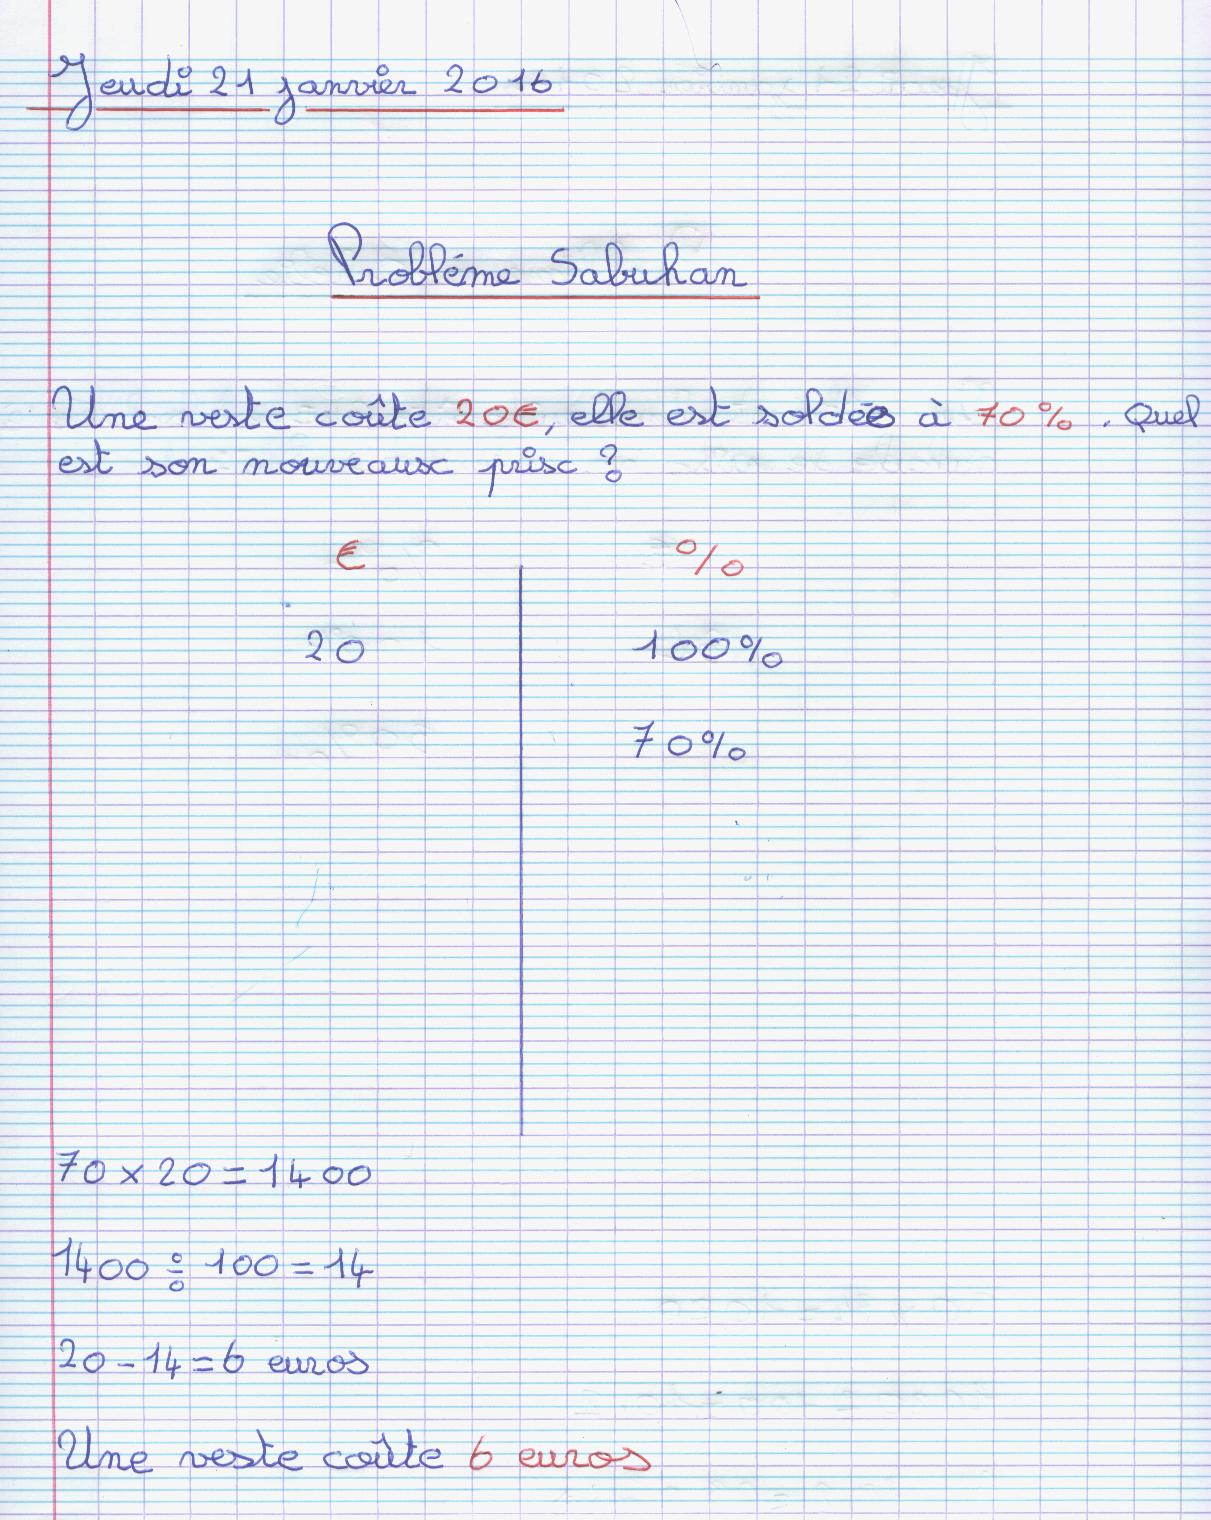 Jeudi 21 janvier 2016
Probléme Sabuhan
Une veste coûte 20€, elle est soldée à 70%. Quel
est son nouveaux prix ?
€ %
20 100%
70%
70 × 20 = 1400
1400 ÷ 100 = 14
20 - 14 = 6 euros
Une veste coûte 6 euros